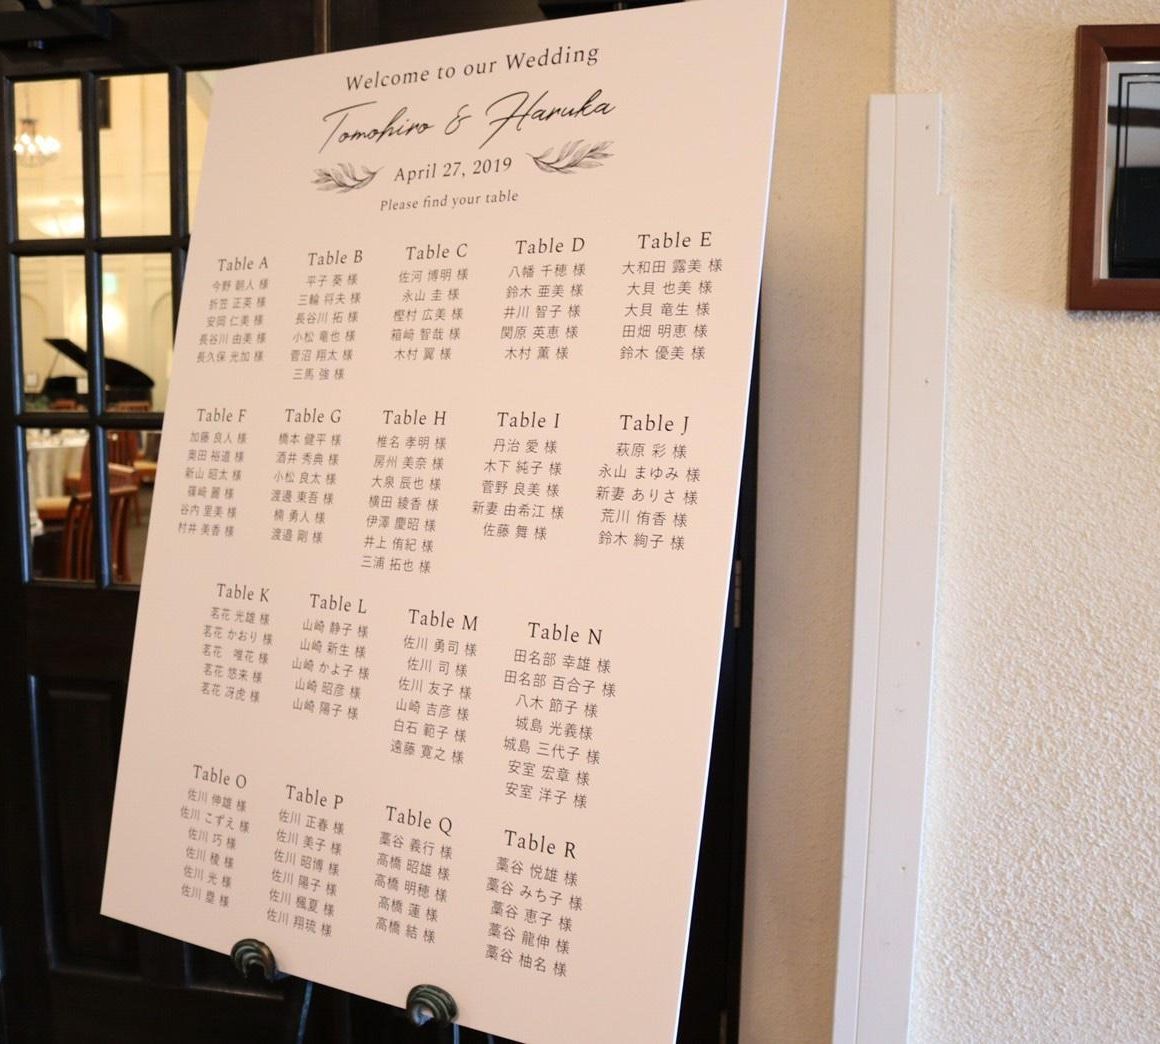 Welcome to our Wedding
Tomohiro & Haruka
April 27, 2019
Please find your table
Table A
今野 朝人 様
折笠 正英 様
安岡 仁美 様
長谷川 由美 様
長久保 光加 様
Table B
平子 葵 様
三輪 将夫 様
長谷川 拓 様
小松 竜也 様
菅沼 翔太 様
三馬 強 様
Table C
佐河 博明 様
永山 圭 様
樫村 広美 様
箱﨑 智哉 様
木村 翼 様
Table D
八幡 千穂 様
鈴木 亜美 様
井川 智子 様
関原 英恵 様
木村 薫 様
Table E
大和田 露美 様
大貝 也美 様
大貝 竜生 様
田畑 明恵 様
鈴木 優美 様
Table F
加藤 良人 様
奥田 裕道 様
新山 昭太 様
篠﨑 麗 様
谷内 里美 様
村井 美香 様
Table G
橋本 健平 様
酒井 秀典 様
小松 良太 様
渡邉 東吾 様
楠 勇人 様
渡邉 剛 様
Table H
椎名 孝明 様
房州 美奈 様
大泉 辰也 様
横田 綾香 様
伊澤 慶昭 様
井上 侑紀 様
三浦 拓也 様
Table I
丹治 愛 様
木下 純子 様
菅野 良美 様
新妻 由希江 様
佐藤 舞 様
Table J
萩原 彩 様
永山 まゆみ 様
新妻 ありさ 様
荒川 侑香 様
鈴木 絢子 様
Table K
茗花 光雄 様
茗花 かおり 様
茗花 唯花 様
茗花 悠来 様
茗花 冴虎 様
Table L
山崎 静子 様
山崎 新生 様
山崎 かよ子 様
山崎 昭彦 様
山崎 陽子 様
Table M
佐川 勇司 様
佐川 司 様
佐川 友子 様
山崎 吉彦 様
白石 範子 様
遠藤 寛之 様
Table N
田名部 幸雄 様
田名部 百合子 様
八木 節子 様
城島 光義様
城島 三代子 様
安室 宏章 様
安室 洋子 様
Table O
佐川 伸雄 様
佐川 こずえ 様
佐川 巧 様
佐川 稜 様
佐川 光 様
佐川 塁 様
Table P
佐川 正春 様
佐川 美子 様
佐川 昭博 様
佐川 陽子 様
佐川 楓夏 様
佐川 翔琉 様
Table Q
藁谷 義行 様
高橋 昭雄 様
高橋 明穂 様
高橋 蓮 様
高橋 結 様
Table R
藁谷 悦雄 様
藁谷 みち子 様
藁谷 恵子 様
藁谷 龍伸 様
藁谷 柚名 様